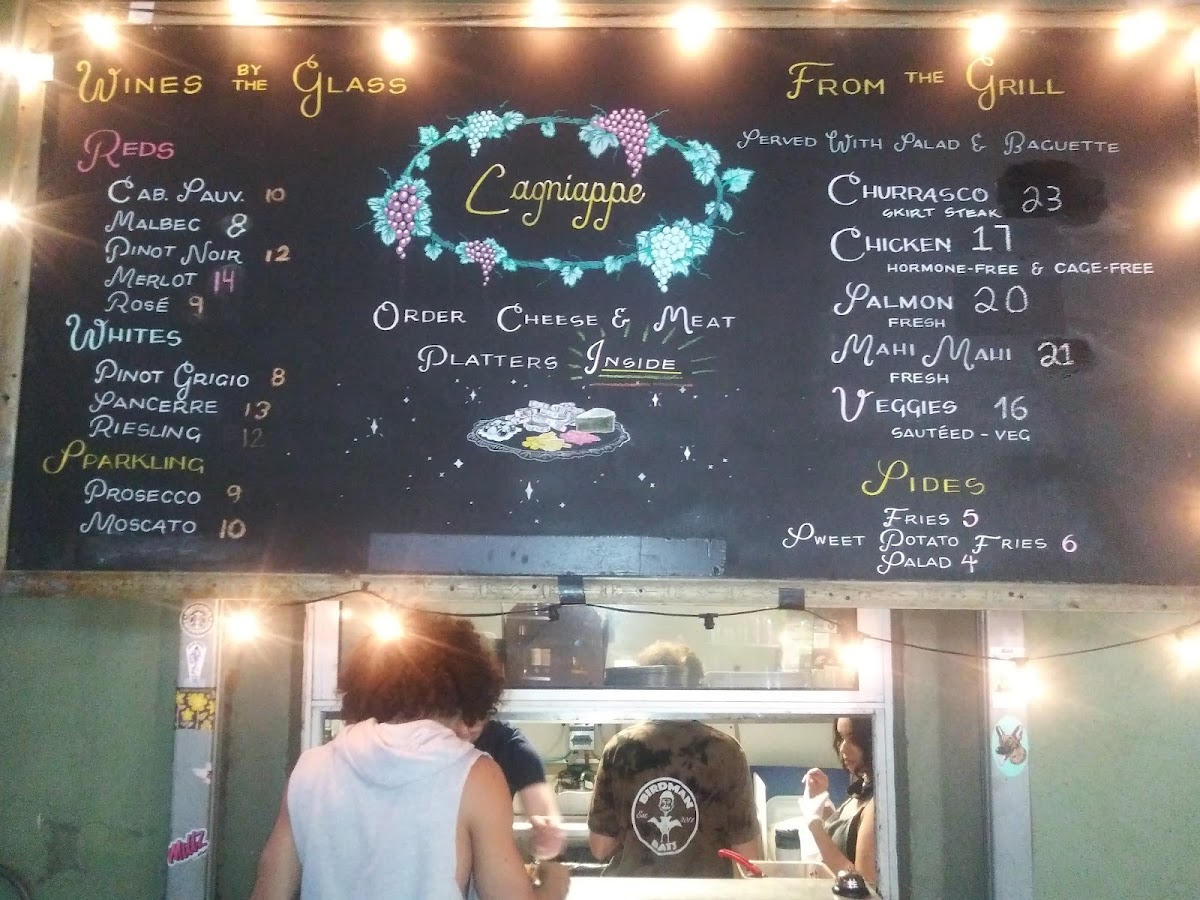 WINES BY THE GLASS
REDS
CAB. SAUV. 10
MALBEC 8
PINOT NOIR 12
MERLOT 14
ROSÉ 9
WHITES
PINOT GRIGIO 8
SANCERRE 13
RIESLING 12
SPARKLING
PROSECCO 9
MOSCATO 10
Lagniappe
ORDER CHEESE & MEAT
PLATTERS INSIDE
FROM THE GRILL
SERVED WITH SALAD & BAGUETTE
CHURRASCO 23
SKIRT STEAK
CHICKEN 17
HORMONE-FREE & CAGE-FREE
SALMON 20
FRESH
MAHI MAHI 21
FRESH
VEGGIES 16
SAUTÉED - VEG
SIDES
FRIES 5
SWEET POTATO FRIES 6
SALAD 4
BIRDMAN